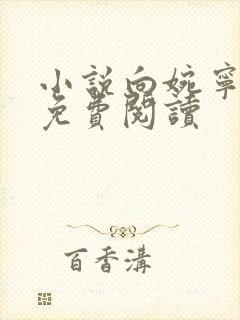 小説向婉寧
免費閱讀
百香溝